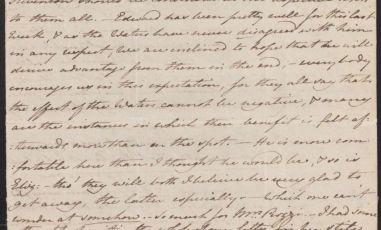 to them all. – Edward has been pretty well for this last
Week, & as the Waters have never disagreed with him
in any respect, we are inclined to hope that he will
derive advantage from them in the end; – everybody
encourages us in this expectation, for they all say that
the effect of the Waters cannot be negative, & many
are the instances in which their benefit is felt af-
terwards more than on the spot. – He is more com-
fortable here than I thought he would be, & so is
Eliz: – tho' they will both I believe be very glad to
get away, the latter especially – Which one can't
wonder at somehow. – So much for Mrs Piozzi. – I had some